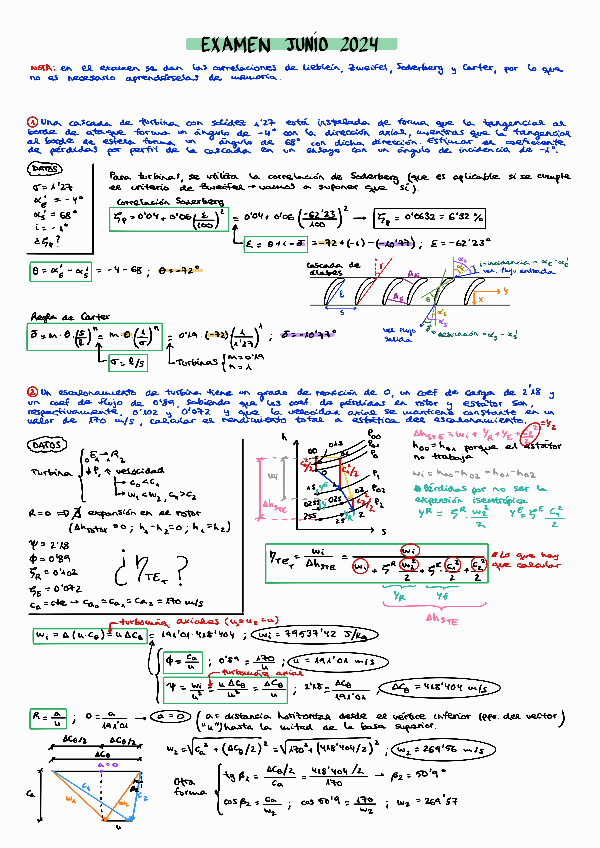 EXAMEN JUNIO 2024
NOTA: en el examen se dan las correlaciones de Lieblein, Zweifel, Soderberg y Carter, por lo que
no es necesario aprendérselas de memoria.
① Una cascada de turbina con solidez 1'27 está instalada de forma que la tangencial al
borde de ataque forma un ángulo de -4° con la dirección axial, mientras que la tangencial
al borde de estela forma un ángulo de 68° con dicha dirección. Estimar el coeficiente
de pérdidas por perfil de la cascada en un ensayo con un ángulo de incidencia de -1°.
DATOS
σ = 1'27
α'E = -4°
α'S = 68°
i = -1°
¿ζP?
Para turbinas, se utiliza la correlación de Soderberg (que es aplicable si se cumple
el criterio de Zweifel → vamos a suponer que sí).
Correlación Soderberg
ζP = 0'04 + 0'06 (ε/100)² = 0'04 + 0'06 (-62'23/100)² → ζP = 0'0632 = 6'32 %
ε = θ + i - δ = -72 + (-1) - (-10'77) ; ε = -62'23°
θ = α'E - α'S = -4 - 68 ; θ = -72°
Cascada de
álabes
i = incidencia = αE - α'E
vel. flujo entrada
vel flujo
salida
δ = desviación = αS - α'S
Regla de Carter
δ = m·θ·(s/l)ⁿ = m·θ·(1/σ)ⁿ = 0'19·(-72)·(1/1'27)¹ ; δ = -10'77°
σ = l/s
Turbinas { m = 0'19
n = 1
② Un escalonamiento de turbina tiene un grado de reacción de 0, un coef de carga de 2'18 y
un coef de flujo de 0'89, sabiendo que los coef. de pérdidas en rotor y estátor son,
respectivamente, 0'102 y 0'072 y que la velocidad axial se mantiene constante en un
valor de 170 m/s, calcular el rendimiento total a estática del escalonamiento.
DATOS
Turbina
velocidad
c0 < c1
w1 < w2, c1 > c2
R = 0 ⇒ ∄ expansión en el rotor
(Δh rotor = 0 ; h1 - h2 = 0 ; h1 = h2)
Ψ = 2'18
Φ = 0'89
ζR = 0'102
ζE = 0'072
ca = cte → ca0 = ca1 = ca2 = 170 m/s
¿ηTET?
h00 = h01 porque el estátor
no trabaja
wi = h00 - h02 = h01 - h02
* Pérdidas por no ser la
expansión isentrópica
YR = ζR w2²/2 YE = ζE c1²/2
ηTET = wi/ΔhSTE = wi / (wi + ζR w2²/2 + ζE c1²/2 + c2²/2)
* Lo que hay
que calcular
YR YE
ΔhSTE
turbomáq axiales (u1 = u2 = u)
wi = Δ(u·cθ) = u·Δcθ = 191'01·418'404 ; wi = 79537'42 J/kg
Φ = ca/u ; 0'89 = 170/u ; u = 191'01 m/s
turbomáq axial
Ψ = wi/u² = u·Δcθ/u² = Δcθ/u ; 2'18 = Δcθ/191'01
Δcθ = 418'404 m/s
R = a/u ; 0 = a/191'01 → a = 0 (a = distancia horizontal desde el vértice inferior (ppo. del vector
"u") hasta la mitad de la base superior.)
Δcθ/2 Δcθ/2
Δcθ
a = 0
w2 = √(ca² + (Δcθ/2)²) = √(170² + (418'404/2)²) ; w2 = 269'56 m/s
Otra
forma
tg β2 = (Δcθ/2)/ca = (418'404/2)/170 → β2 = 50'9°
cos β2 = ca/w2 ; cos 50'9 = 170/w2 ; w2 = 269'57